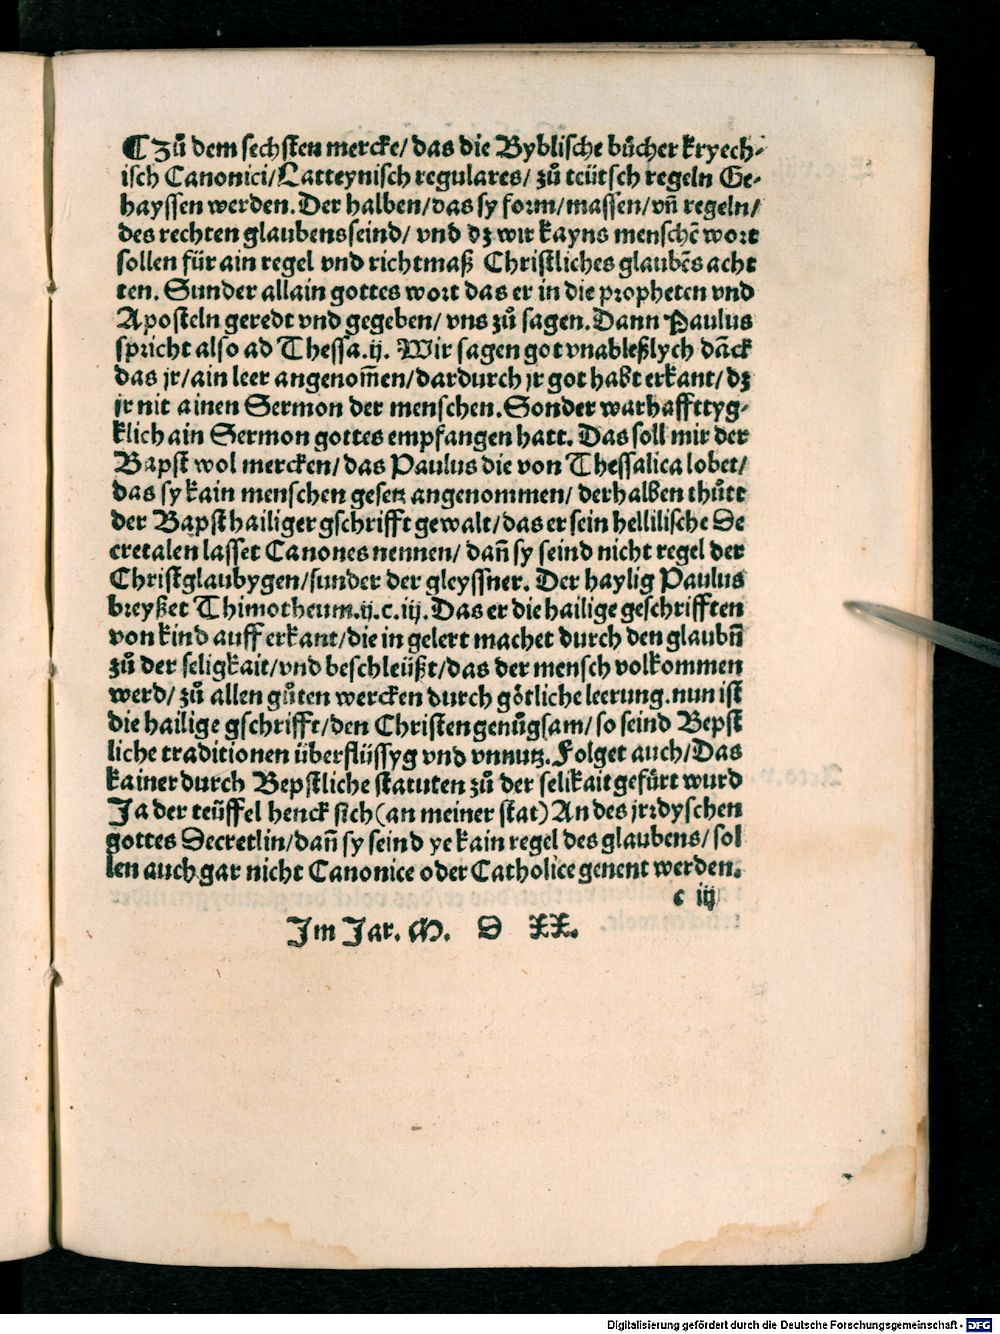 ¶ Zů dem sechsten mercke/ das die Byblische bůcher kryech-
isch Canonici/Latteynisch regulares/ zů teütsch regeln Ge-
hayssen werden. Der halben/das sy form/massen/vñ regeln/
des rechten glaubens seind/ vnd dz wir kayns menschē wort
sollen für ain regel vnd richtmaß Christliches glaubēs acht
ten. Sunder allain gottes wort das er in die propheten vnd
Aposteln geredt vnd gegeben/ vns zů sagen. Dann Paulus
spricht also ad Thessa.ij. Wir sagen got vnableßlych dāck
das jr/ain leer angenom̄en/dardurch jr got habt erkant/ dz
jr nit ainen Sermon der menschen. Sonder warhaffttyg-
klich ain Sermon gottes empfangen hatt. Das soll mir der
Bapst wol mercken/ das Paulus die von Thessalica lobet/
das sy kain menschen gesetz angenommen/ derhalben thůtt
der Bapst hailiger gschrifft gewalt/das er sein hellilische De
cretalen lasset Canones nennen/ dañ sy seind nicht regel der
Christglaubygen/sunder der gleyssner. Der haylig Paulus
breyßet Thimotheum.ij.c.iij. Das er die hailige geschrifften
von kind auff erkant/die in gelert machet durch den glaubñ
zů der seligkait/vnd beschleüßt/das der mensch volkommen
werd/ zů allen gůten wercken durch götliche leerung. nun ist
die hailige gschrifft/den Christen genůgsam/ so seind Bepst
liche traditionen überflüssyg vnd vnnutz. Folget auch/Das
kainer durch Bepstliche statuten zů der selikait gefürt wurd
Ja der teüffel henck sich (an meiner stat) An des jrrdyschen
gottes Decretlin/dañ sy seind ye kain regel des glaubens/ sol
len auch gar nicht Canonice oder Catholice genent werden.
c iij
Im Jar. M. D XX.
Digitalisierung gefördert durch die Deutsche Forschungsgemeinschaft - DFG